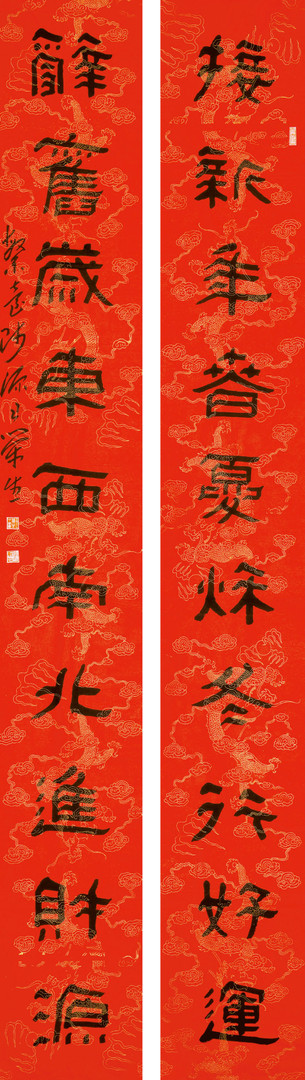 接新年春夏秋冬行好運
辭舊歲東西南北進財源